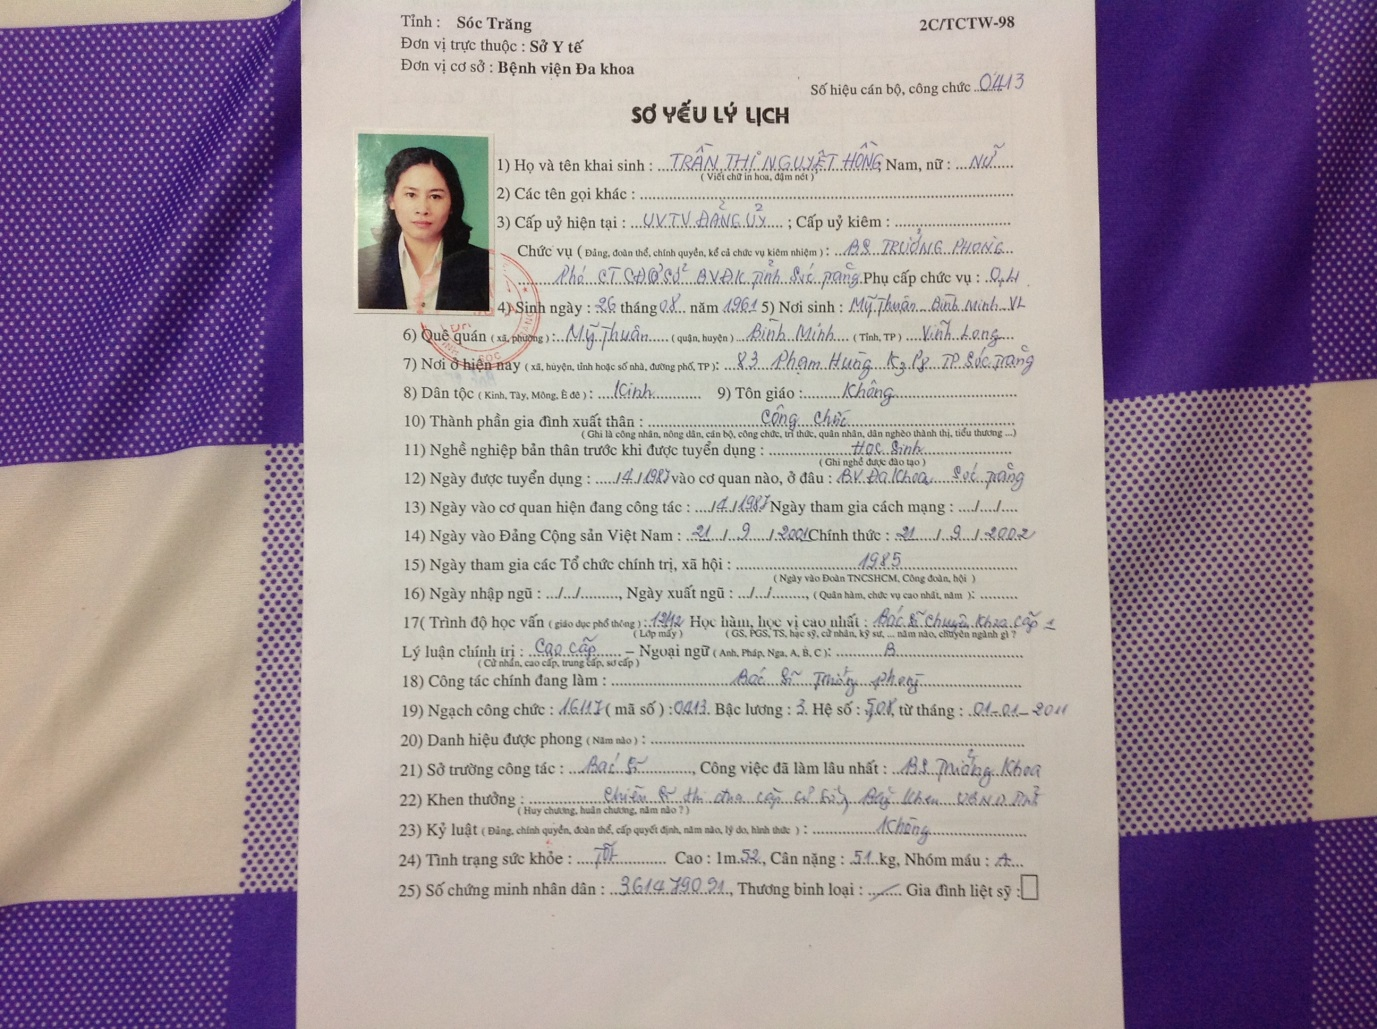 Tỉnh : Sóc Trăng
2C/TCTW-98
Đơn vị trực thuộc : Sở Y tế
Đơn vị cơ sở : Bệnh viện Đa khoa
Số hiệu cán bộ, công chức ..0413
SƠ YẾU LÝ LỊCH
1) Họ và tên khai sinh : ...TRẦN THỊ NGUYỆT HỒNG Nam, nữ : ...NỮ.....
( Viết chữ in hoa, đậm nét )
2) Các tên gọi khác : ..........
3) Cấp uỷ hiện tại : ...UVTV ĐẢNG ỦY.... ; Cấp uỷ kiêm : ..........
Chức vụ ( Đảng, đoàn thể, chính quyền, kể cả chức vụ kiêm nhiệm ) : ...BS TRƯỞNG PHÒNG...
Phó CT CĐ Cơ sở BVĐK Tỉnh Sóc Trăng Phụ cấp chức vụ : 0,4
4) Sinh ngày : 26 tháng 08... năm 1961 5) Nơi sinh : Mỹ Thuận Bình Minh VL
6) Quê quán ( xã, phường ) : Mỹ Thuận ..... ( quận, huyện ) ...Bình Minh... ( Tỉnh, TP ) ...Vĩnh Long....
7) Nơi ở hiện nay ( xã, huyện, tỉnh hoặc số nhà, đường phố, TP ): ..83 Phạm Hùng K3 P8 TP Sóc Trăng
8) Dân tộc ( Kinh, Tày, Mông, Ê đê ) : ...Kinh.......... 9) Tôn giáo :.......Không..........
10) Thành phần gia đình xuất thân : ..........Công Chức..........
( Ghi là công nhân, nông dân, cán bộ, công chức, trí thức, quân nhân, dân nghèo thành thị, tiểu thương ...)
11) Nghề nghiệp bản thân trước khi được tuyển dụng : ..........Học Sinh..........
( Ghi nghề được đào tạo )
12) Ngày được tuyển dụng : ...../4/1987 vào cơ quan nào, ở đâu : BV Đa Khoa Sóc Trăng
13) Ngày vào cơ quan hiện đang công tác : .../4/1987 Ngày tham gia cách mạng : .../.../....
14) Ngày vào Đảng Cộng sản Việt Nam : ..21../..9../.2001 Chính thức : .21..../..9./.2002
15) Ngày tham gia các Tổ chức chính trị, xã hội : ..........1985..........
( Ngày vào Đoàn TNCSHCM, Công đoàn, hội )
16) Ngày nhập ngũ : .../.../........., Ngày xuất ngũ : .../.../........, ( Quân hàm, chức vụ cao nhất, năm ): .........
17( Trình độ học vấn ( giáo dục phổ thông ) : 12/12 Học hàm, học vị cao nhất : Bác sĩ Chuyên Khoa cấp 1
( Lớp mấy ) ( GS, PGS, TS, thạc sỹ, cử nhân, kỹ sư, ... năm nào, chuyên ngành gì ?
Lý luận chính trị : ..Cao cấp...... – Ngoại ngữ ( Anh, Pháp, Nga, A, B, C ): ..........B..........
( Cử nhân, cao cấp, trung cấp, sơ cấp )
18) Công tác chính đang làm : ..........Bác Sĩ Trưởng phòng..........
19) Ngạch công chức : 16117 ( mã số ) :0413. Bậc lương : 3. Hệ số : 5,08, từ tháng : 01-01-2011
20) Danh hiệu được phong ( Năm nào ) : ..........
21) Sở trường công tác : ...Bác Sĩ.........., Công việc đã làm lâu nhất : ..BS Trưởng Khoa
22) Khen thưởng : ..........Chiến sĩ thi đua cấp cơ sở, Bằng Khen UBND Tỉnh
( Huy chương, huân chương, năm nào ? )
23) Kỷ luật ( Đảng, chính quyền, đoàn thể, cấp quyết định, năm nào, lý do, hình thức ) : ..........Không..........
24) Tình trạng sức khỏe : ....Tốt.......... Cao : 1m.52., Cân nặng : .51.kg, Nhóm máu : .A...
25) Số chứng minh nhân dân : ..361479091., Thương binh loại : ........ Gia đình liệt sỹ :